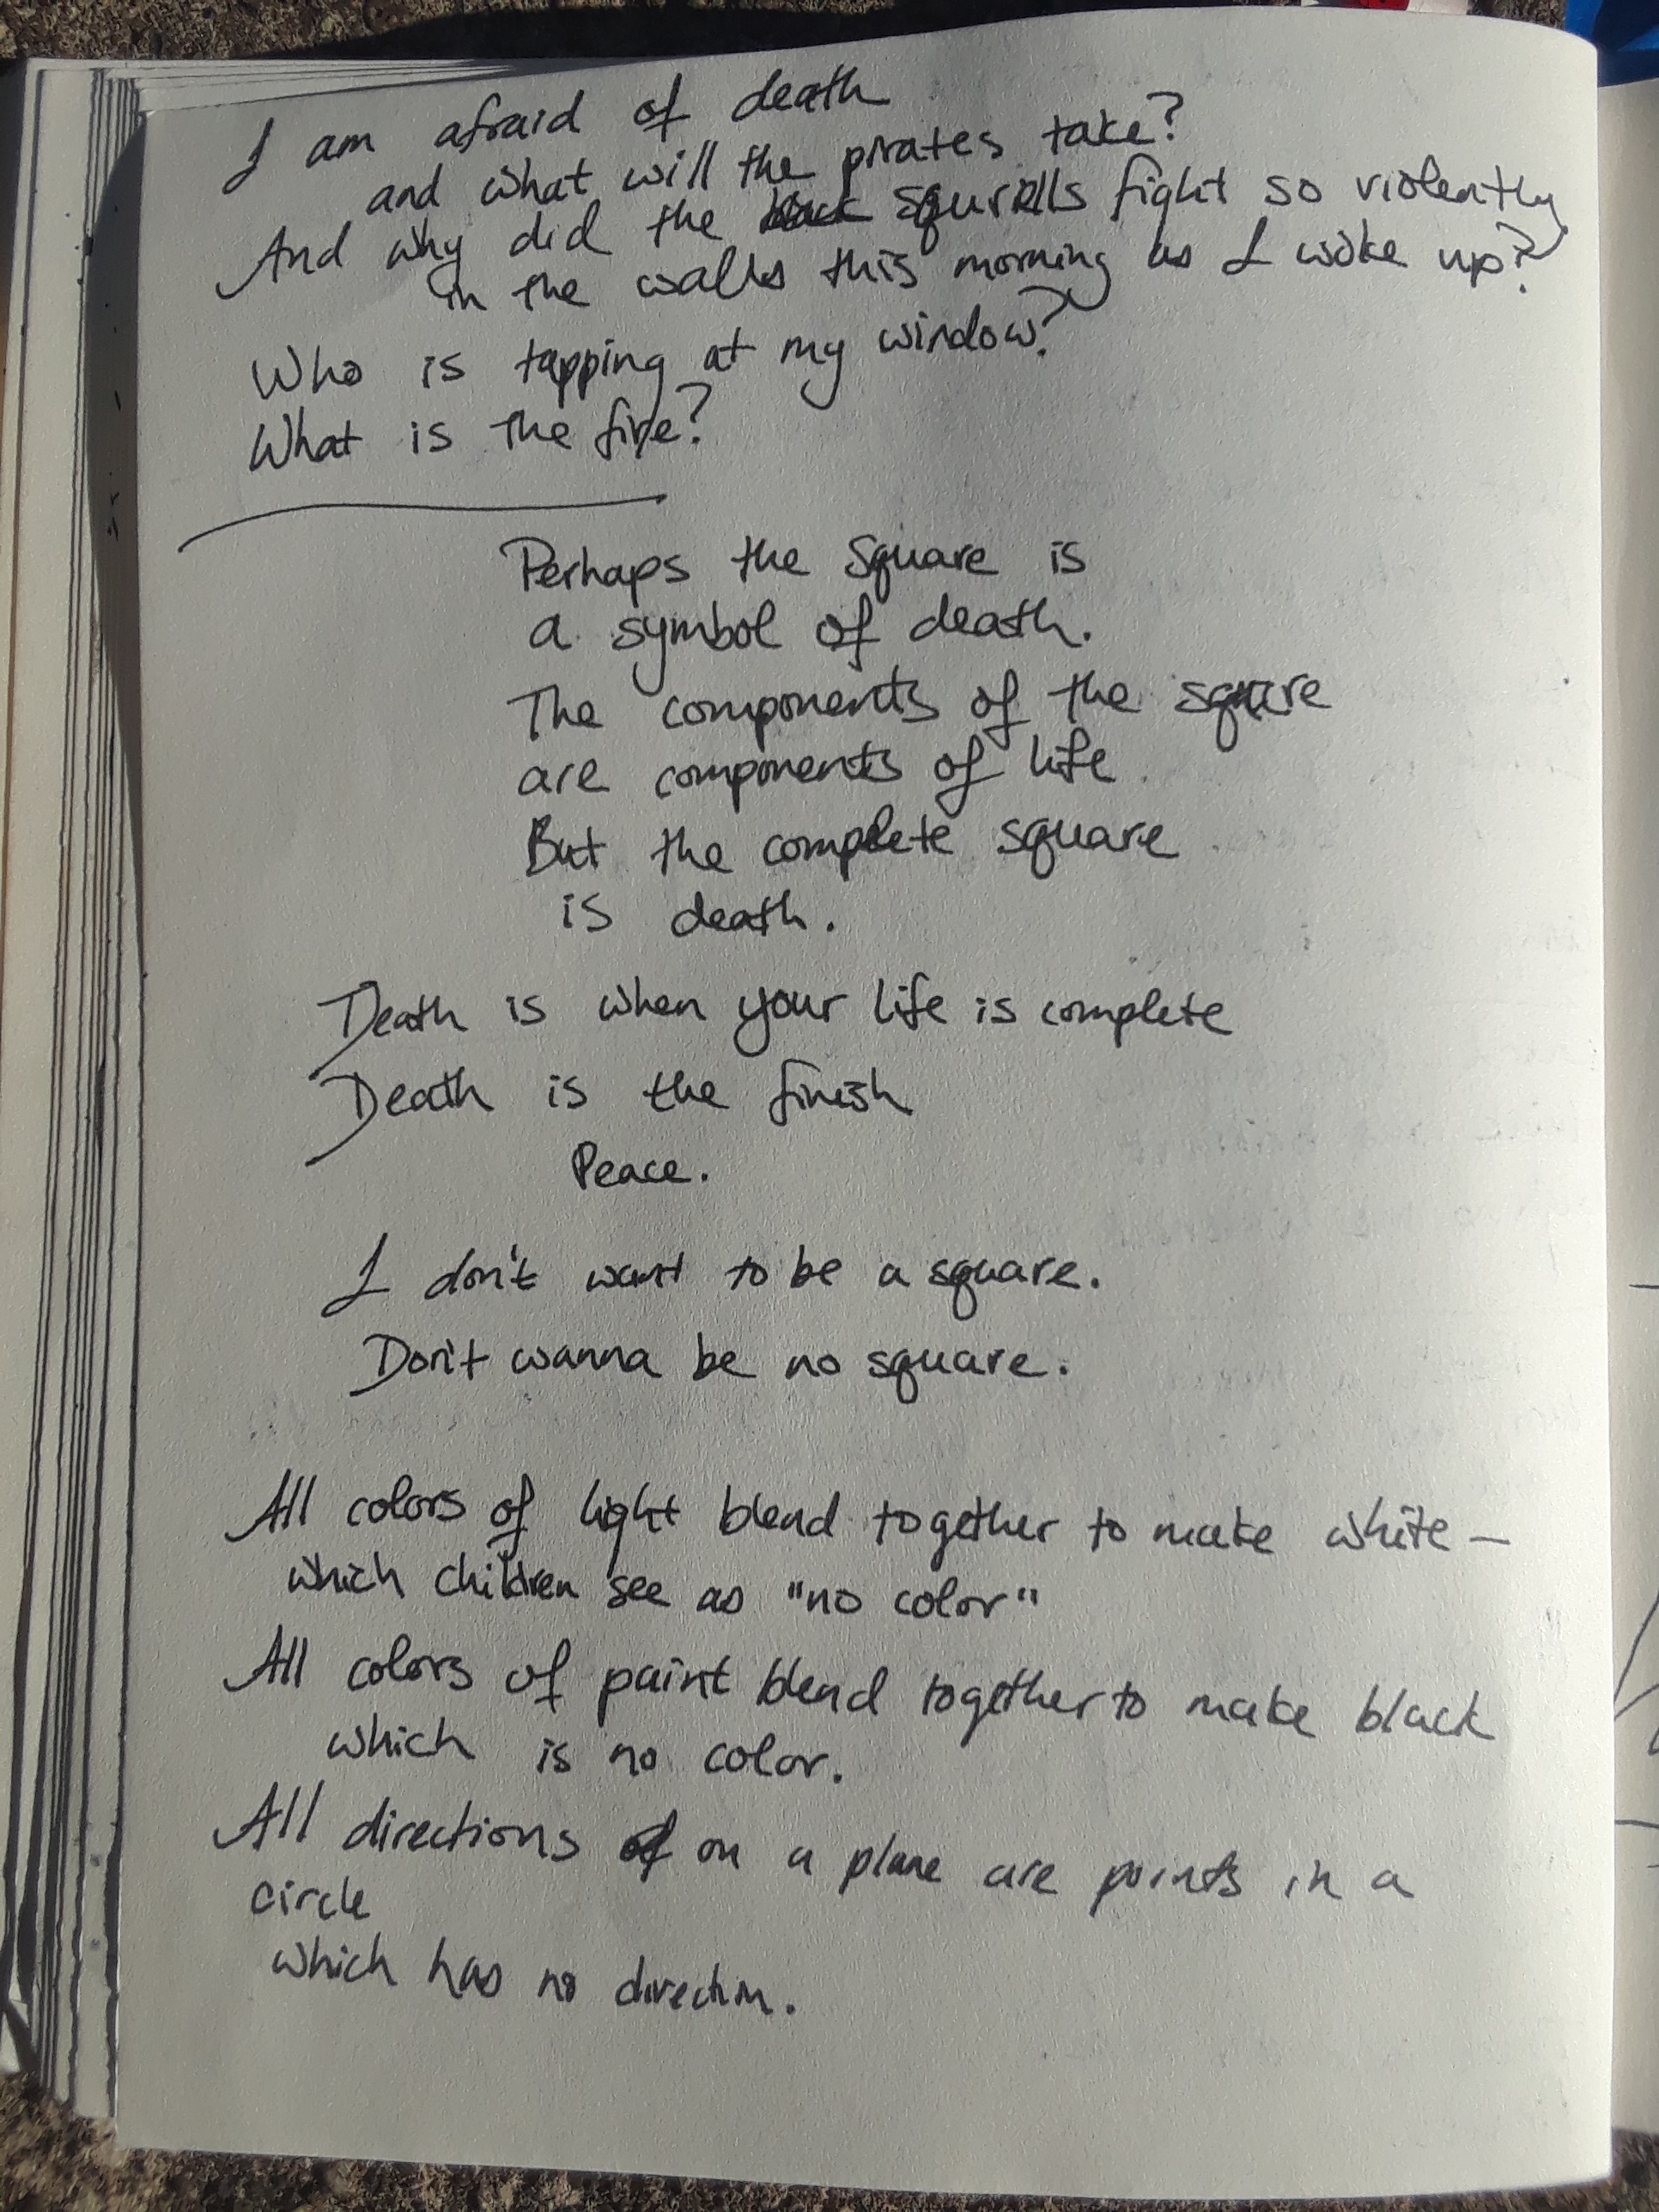 I am afraid of death
and what will the pirates take?
And why did the squrells fight so violently
in the walls this morning as I woke up?
Who is tapping at my window?
What is the fire?
Perhaps the square is
a symbol of death.
The components of the square
are components of life.
But the complete square
is death.
Death is when your life is complete
Death is the finish
Peace.
I don't want to be a square.
Don't wanna be no square.
All colors of light blend together to make white —
which children see as "no color"
All colors of paint blend together to make black
which is no color.
All directions on a plane are points in a
circle
which has no direction.